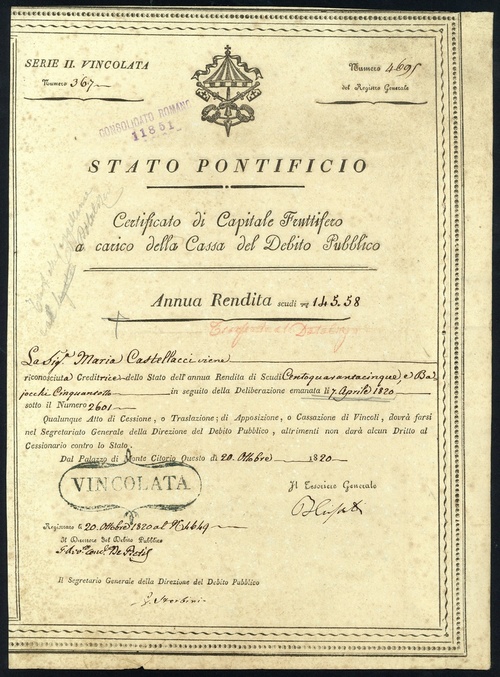 SERIE II. VINCOLATA
Numero 367
Numero 4695
del Registro Generale
CONSOLIDATO ROMANO
11851
STATO PONTIFICIO
Certificato di Capitale Fruttifero
a carico della Cassa del Debito Pubblico
Annua Rendita scudi 145.58
La Sig.ª Maria Castellacci viene
riconosciuta Creditrice dello Stato dell'annua Rendita di Scudi Centoquarantacinque, e Ba-
jocchi Cinquantotto in seguito della Deliberazione emanata li 7 Aprile 1820
sotto il Numero 2601
Qualunque Atto di Cessione, o Traslazione; di Apposizione, o Cassazione di Vincoli, dovrà farsi
nel Segretariato Generale della Direzione del Debito Pubblico, altrimenti non darà alcun Dritto al
Cessionario contro lo Stato.
Dal Palazzo di Monte Citorio Questo dì 20. Ottobre 1820
VINCOLATA
Il Tesoriere Generale
Registrato li 20 Ottobre 1820 al Nº 4649
Il Direttore del Debito Pubblico
Il Segretario Generale della Direzione del Debito Pubblico